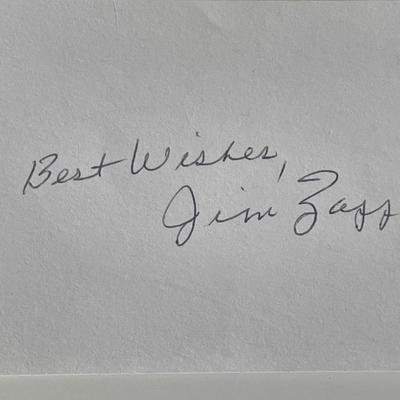 Best Wishes,
Jim Zapp